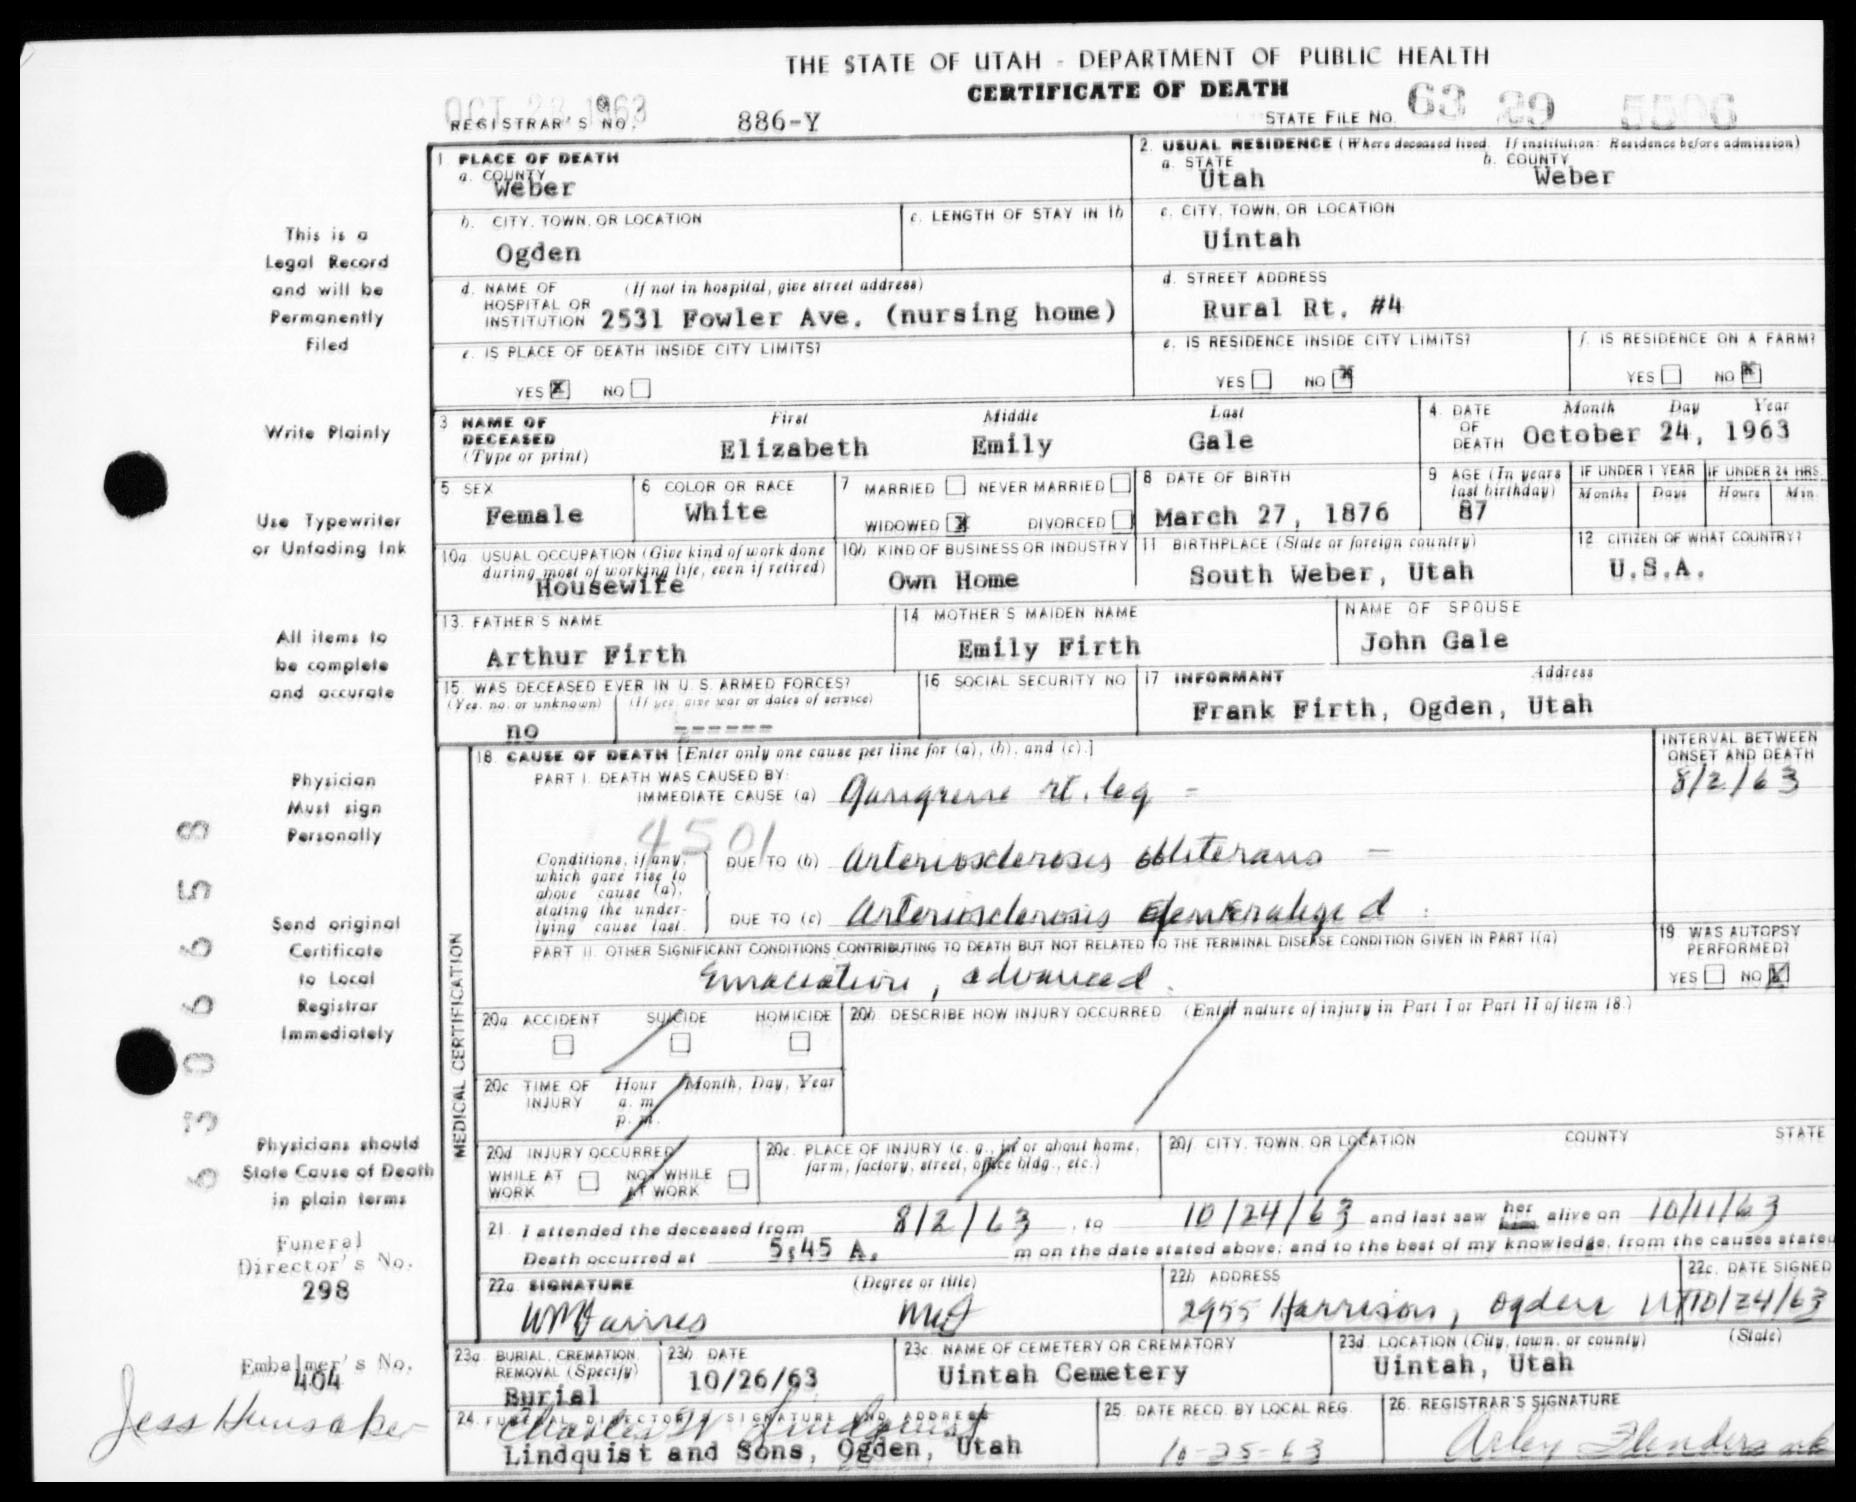 THE STATE OF UTAH - DEPARTMENT OF PUBLIC HEALTH
CERTIFICATE OF DEATH
OCT 28 1963
REGISTRAR'S NO. 886-Y STATE FILE NO. 63 29 5506
1. PLACE OF DEATH
a. COUNTY
Weber
2. USUAL RESIDENCE (Where deceased lived. If institution: Residence before admission)
a. STATE b. COUNTY
Utah Weber
b. CITY, TOWN, OR LOCATION
Ogden
c. LENGTH OF STAY IN 1b
c. CITY, TOWN, OR LOCATION
Uintah
d. NAME OF HOSPITAL OR INSTITUTION (If not in hospital, give street address)
2531 Fowler Ave. (nursing home)
d. STREET ADDRESS
Rural Rt. #4
e. IS PLACE OF DEATH INSIDE CITY LIMITS?
YES X NO
e. IS RESIDENCE INSIDE CITY LIMITS?
YES NO X
f. IS RESIDENCE ON A FARM?
YES NO X
3 NAME OF DECEASED (Type or print) First Middle Last
Elizabeth Emily Gale
4. DATE OF DEATH Month Day Year
October 24, 1963
5 SEX
Female
6 COLOR OR RACE
White
7 MARRIED NEVER MARRIED
WIDOWED X DIVORCED
8 DATE OF BIRTH
March 27, 1876
9 AGE (In years last birthday)
87
IF UNDER 1 YEAR IF UNDER 24 HRS.
Months Days Hours Min.
10a USUAL OCCUPATION (Give kind of work done during most of working life, even if retired)
Housewife
10b KIND OF BUSINESS OR INDUSTRY
Own Home
11 BIRTHPLACE (State or foreign country)
South Weber, Utah
12 CITIZEN OF WHAT COUNTRY?
U.S.A.
13. FATHER'S NAME
Arthur Firth
14 MOTHER'S MAIDEN NAME
Emily Firth
NAME OF SPOUSE
John Gale
15. WAS DECEASED EVER IN U. S. ARMED FORCES?
(Yes, no, or unknown) (If yes, give war or dates of service)
no ------
16 SOCIAL SECURITY NO.
17 INFORMANT Address
Frank Firth, Ogden, Utah
18 CAUSE OF DEATH [Enter only one cause per line for (a), (b), and (c).]
INTERVAL BETWEEN ONSET AND DEATH
PART I. DEATH WAS CAUSED BY:
IMMEDIATE CAUSE (a) Gangrene rt. leg - 8/2/63
4501
Conditions, if any, which gave rise to above cause (a), stating the underlying cause last.
DUE TO (b) Arteriosclerosis obliterans -
DUE TO (c) Arteriosclerosis generalized
PART II. OTHER SIGNIFICANT CONDITIONS CONTRIBUTING TO DEATH BUT NOT RELATED TO THE TERMINAL DISEASE CONDITION GIVEN IN PART I(a)
Emaciation, advanced.
19 WAS AUTOPSY PERFORMED?
YES NO X
MEDICAL CERTIFICATION
20a ACCIDENT SUICIDE HOMICIDE
20b DESCRIBE HOW INJURY OCCURRED. (Enter nature of injury in Part I or Part II of item 18.)
20c TIME OF INJURY Hour Month, Day, Year
a. m.
p. m.
20d INJURY OCCURRED
WHILE AT WORK NOT WHILE AT WORK
20e. PLACE OF INJURY (e. g., in or about home, farm, factory, street, office bldg., etc.)
20f. CITY, TOWN, OR LOCATION COUNTY STATE
21. I attended the deceased from 8/2/63, to 10/24/63 and last saw her him alive on 10/11/63
Death occurred at 5:45 A. m on the date stated above; and to the best of my knowledge, from the causes stated
22a. SIGNATURE (Degree or title)
22b ADDRESS
2955 Harrison, Ogden UT
22c. DATE SIGNED
10/24/63
23a. BURIAL, CREMATION, REMOVAL (Specify)
Burial
23b DATE
10/26/63
23c NAME OF CEMETERY OR CREMATORY
Uintah Cemetery
23d LOCATION (City, town, or county) (State)
Uintah, Utah
24. FUNERAL DIRECTOR'S SIGNATURE AND ADDRESS
Charles W Lindquist
Lindquist and Sons, Ogden, Utah
25 DATE RECD. BY LOCAL REG.
10-25-63
26. REGISTRAR'S SIGNATURE
This is a
Legal Record
and will be
Permanently
Filed
Write Plainly
Use Typewriter
or Unfading Ink
All items to
be complete
and accurate
Physician
Must sign
Personally
Send original
Certificate
to Local
Registrar
Immediately
Physicians should
State Cause of Death
in plain terms
Funeral
Director's No.
298
Embalmer's No.
404
Jess Hunsaker
63066 58